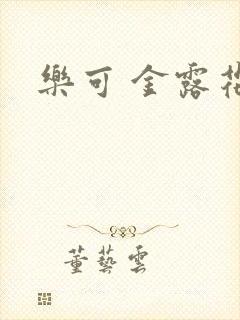 樂可 金露花
董藝雲